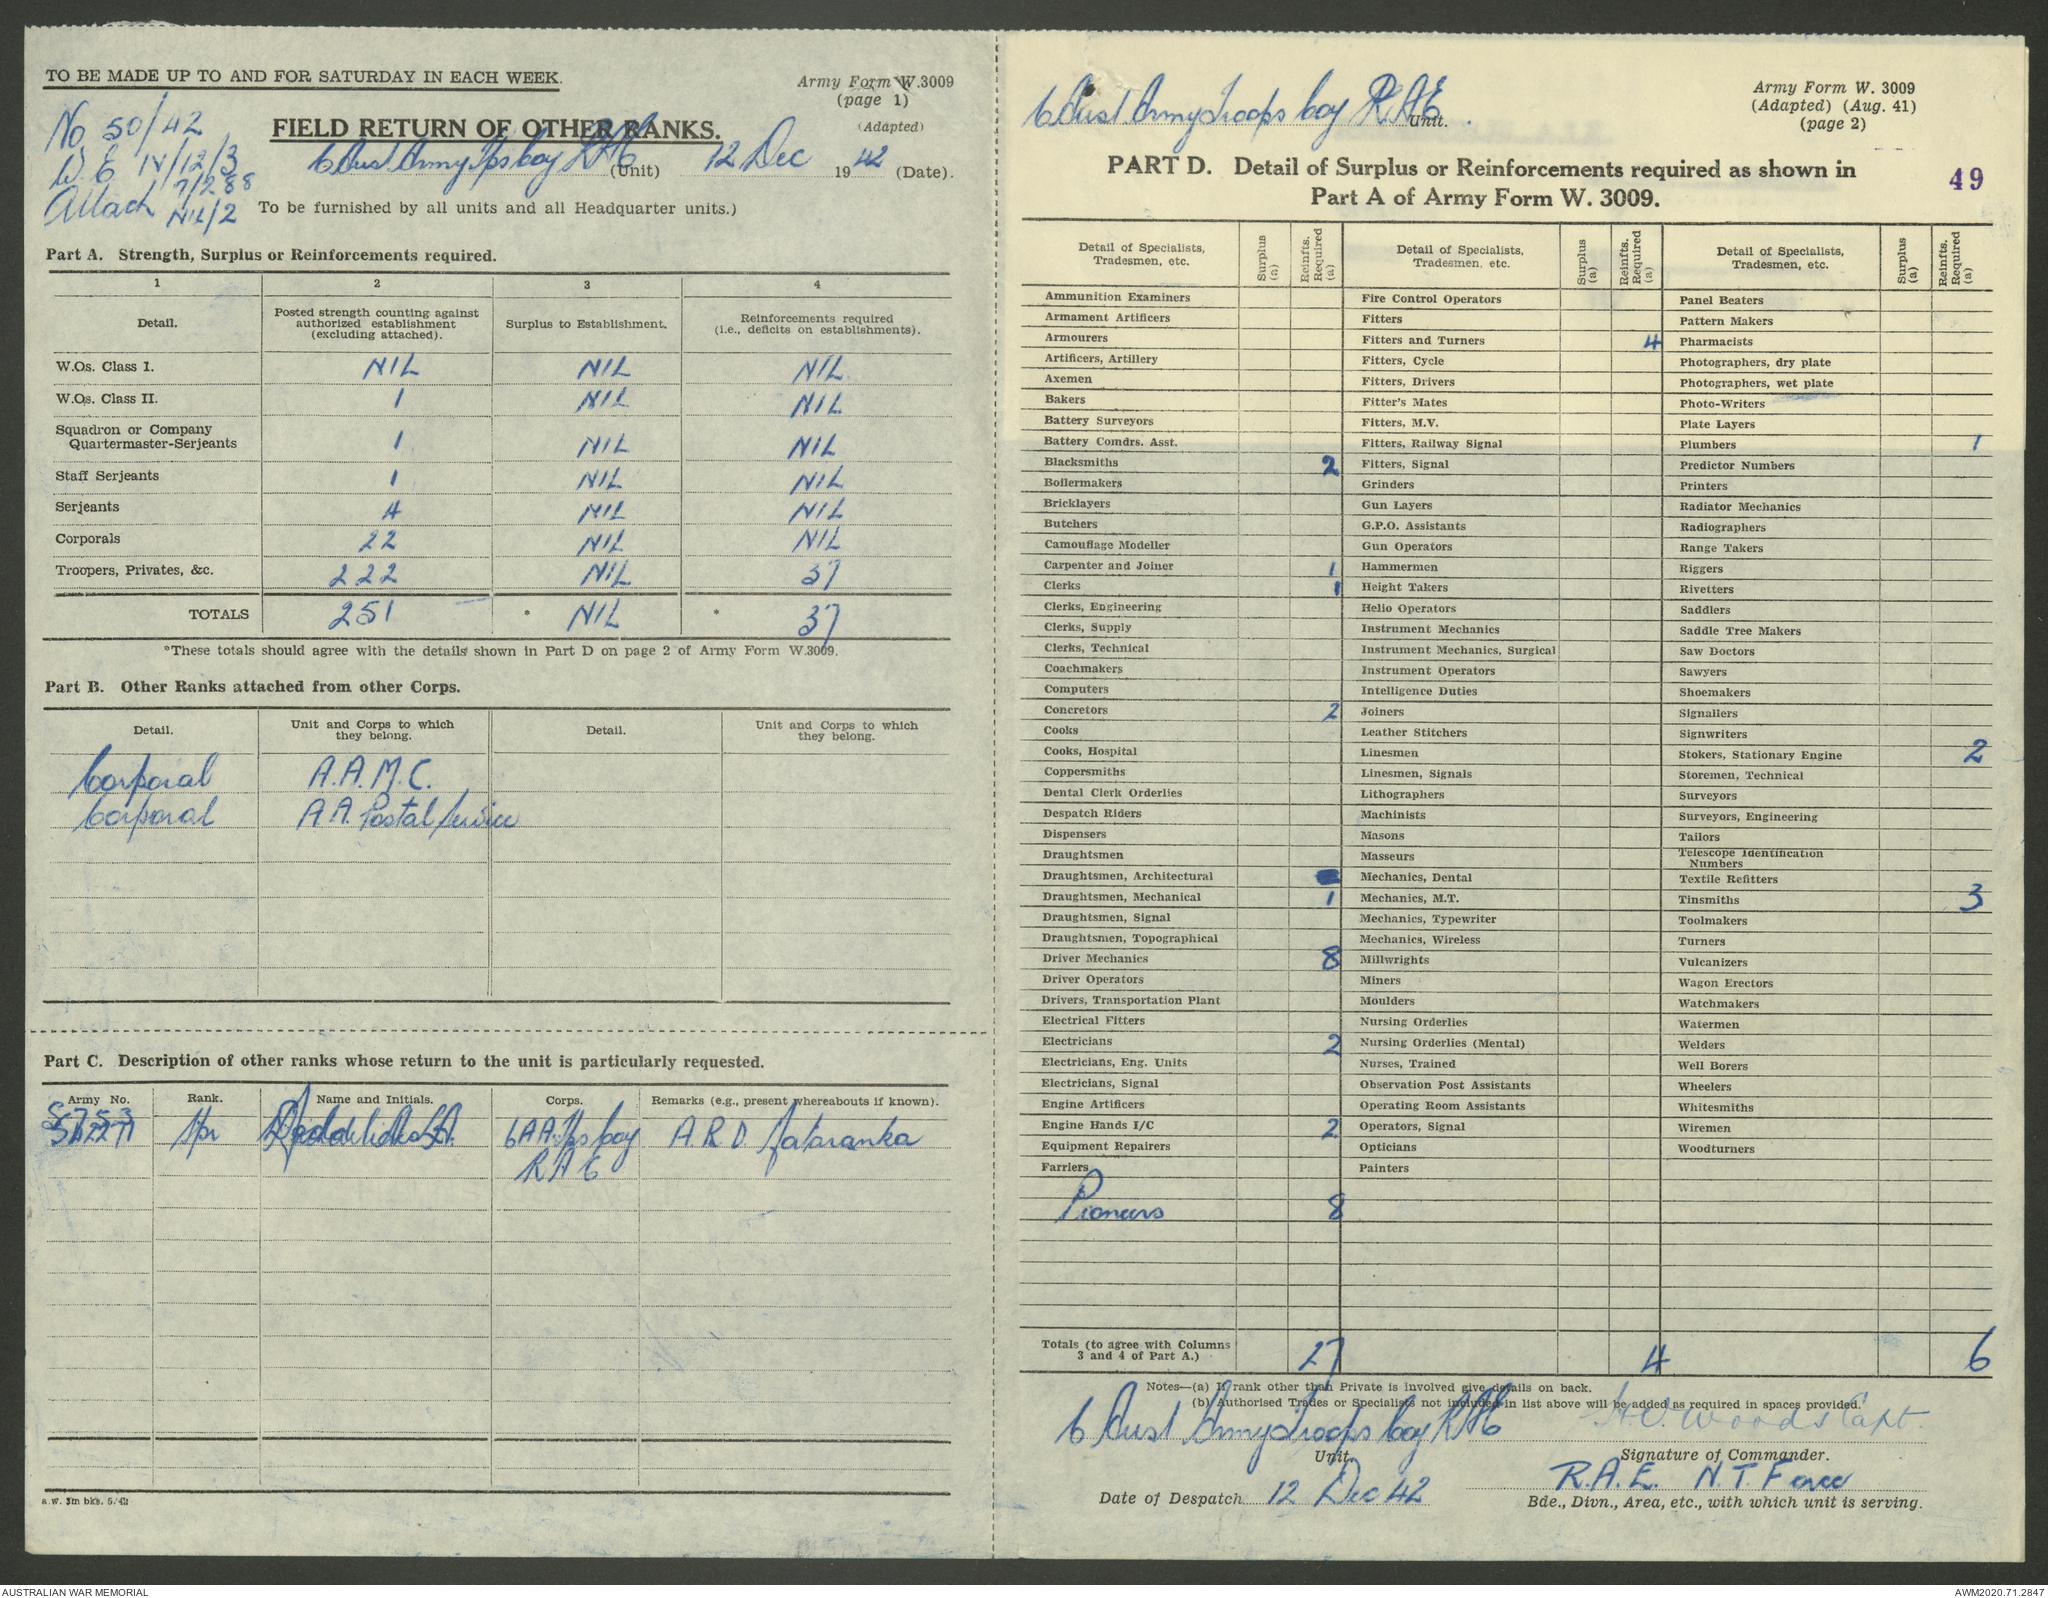 TO BE MADE UP TO AND FOR SATURDAY IN EACH WEEK.
Army Form W.3009
(page 1)
(Adapted)
No 50/42
W.E. 14/12/3
7/288
Attach NIL/2
FIELD RETURN OF OTHER RANKS.
6 Aust Army Tps Coy RAE (Unit) 12 Dec 1942 (Date).
To be furnished by all units and all Headquarter units.)
Part A. Strength, Surplus or Reinforcements required.
1 2 3 4
Detail. Posted strength counting against authorized establishment (excluding attached). Surplus to Establishment. Reinforcements required (i.e., deficits on establishments).
W.Os. Class I. NIL NIL NIL
W.Os. Class II. 1 NIL NIL
Squadron or Company Quartermaster-Serjeants 1 NIL NIL
Staff Serjeants 1 NIL NIL
Serjeants 4 NIL NIL
Corporals 22 NIL NIL
Troopers, Privates, &c. 222 NIL 37
TOTALS 251 * NIL * 37
*These totals should agree with the details shown in Part D on page 2 of Army Form W.3009.
Part B. Other Ranks attached from other Corps.
Detail. Unit and Corps to which they belong. Detail. Unit and Corps to which they belong.
Corporal A.A.M.C.
Corporal A.A. Postal Service
Part C. Description of other ranks whose return to the unit is particularly requested.
Army No. Rank. Name and Initials. Corps. Remarks (e.g., present whereabouts if known).
Spr 6 A A Tps Coy A.R.D. Mataranka
RAE
a.w. 3m bks. 5/42
6 Aust Army Troops Coy RAE Unit.
Army Form W. 3009
(Adapted) (Aug. 41)
(page 2)
PART D. Detail of Surplus or Reinforcements required as shown in
Part A of Army Form W. 3009.
49
Detail of Specialists, Tradesmen, etc. Surplus (a) Reinfts. Required (a) Detail of Specialists, Tradesmen, etc. Surplus (a) Reinfts. Required (a) Detail of Specialists, Tradesmen, etc. Surplus (a) Reinfts. Required (a)
Ammunition Examiners Fire Control Operators Panel Beaters
Armament Artificers Fitters Pattern Makers
Armourers Fitters and Turners 4 Pharmacists
Artificers, Artillery Fitters, Cycle Photographers, dry plate
Axemen Fitters, Drivers Photographers, wet plate
Bakers Fitter's Mates Photo-Writers
Battery Surveyors Fitters, M.V. Plate Layers
Battery Comdrs. Asst. Fitters, Railway Signal Plumbers 1
Blacksmiths 2 Fitters, Signal Predictor Numbers
Boilermakers Grinders Printers
Bricklayers Gun Layers Radiator Mechanics
Butchers G.P.O. Assistants Radiographers
Camouflage Modeller Gun Operators Range Takers
Carpenter and Joiner 1 Hammermen Riggers
Clerks 1 Height Takers Rivetters
Clerks, Engineering Helio Operators Saddlers
Clerks, Supply Instrument Mechanics Saddle Tree Makers
Clerks, Technical Instrument Mechanics, Surgical Saw Doctors
Coachmakers Instrument Operators Sawyers
Computers Intelligence Duties Shoemakers
Concretors 2 Joiners Signallers
Cooks Leather Stitchers Signwriters
Cooks, Hospital Linesmen Stokers, Stationary Engine 2
Coppersmiths Linesmen, Signals Storemen, Technical
Dental Clerk Orderlies Lithographers Surveyors
Despatch Riders Machinists Surveyors, Engineering
Dispensers Masons Tailors
Draughtsmen Masseurs Telescope Identification Numbers
Draughtsmen, Architectural Mechanics, Dental Textile Refitters
Draughtsmen, Mechanical 1 Mechanics, M.T. Tinsmiths 3
Draughtsmen, Signal Mechanics, Typewriter Toolmakers
Draughtsmen, Topographical Mechanics, Wireless Turners
Driver Mechanics 8 Millwrights Vulcanizers
Driver Operators Miners Wagon Erectors
Drivers, Transportation Plant Moulders Watchmakers
Electrical Fitters Nursing Orderlies Watermen
Electricians 2 Nursing Orderlies (Mental) Welders
Electricians, Eng. Units Nurses, Trained Well Borers
Electricians, Signal Observation Post Assistants Wheelers
Engine Artificers Operating Room Assistants Whitesmiths
Engine Hands I/C 2 Operators, Signal Wiremen
Equipment Repairers Opticians Woodturners
Farriers Painters
Pioneers 8
Totals (to agree with Columns 3 and 4 of Part A.) 27 4 6
Notes—(a) If rank other than Private is involved give details on back.
(b) Authorised Trades or Specialists not included in list above will be added as required in spaces provided.
6 Aust Army Troops Coy RAE Woods Capt.
Unit. Signature of Commander.
R.A.E. N.T. Force
Date of Despatch 12 Dec 42 Bde., Divn., Area, etc., with which unit is serving.
AUSTRALIAN WAR MEMORIAL AWM2020.71.2847